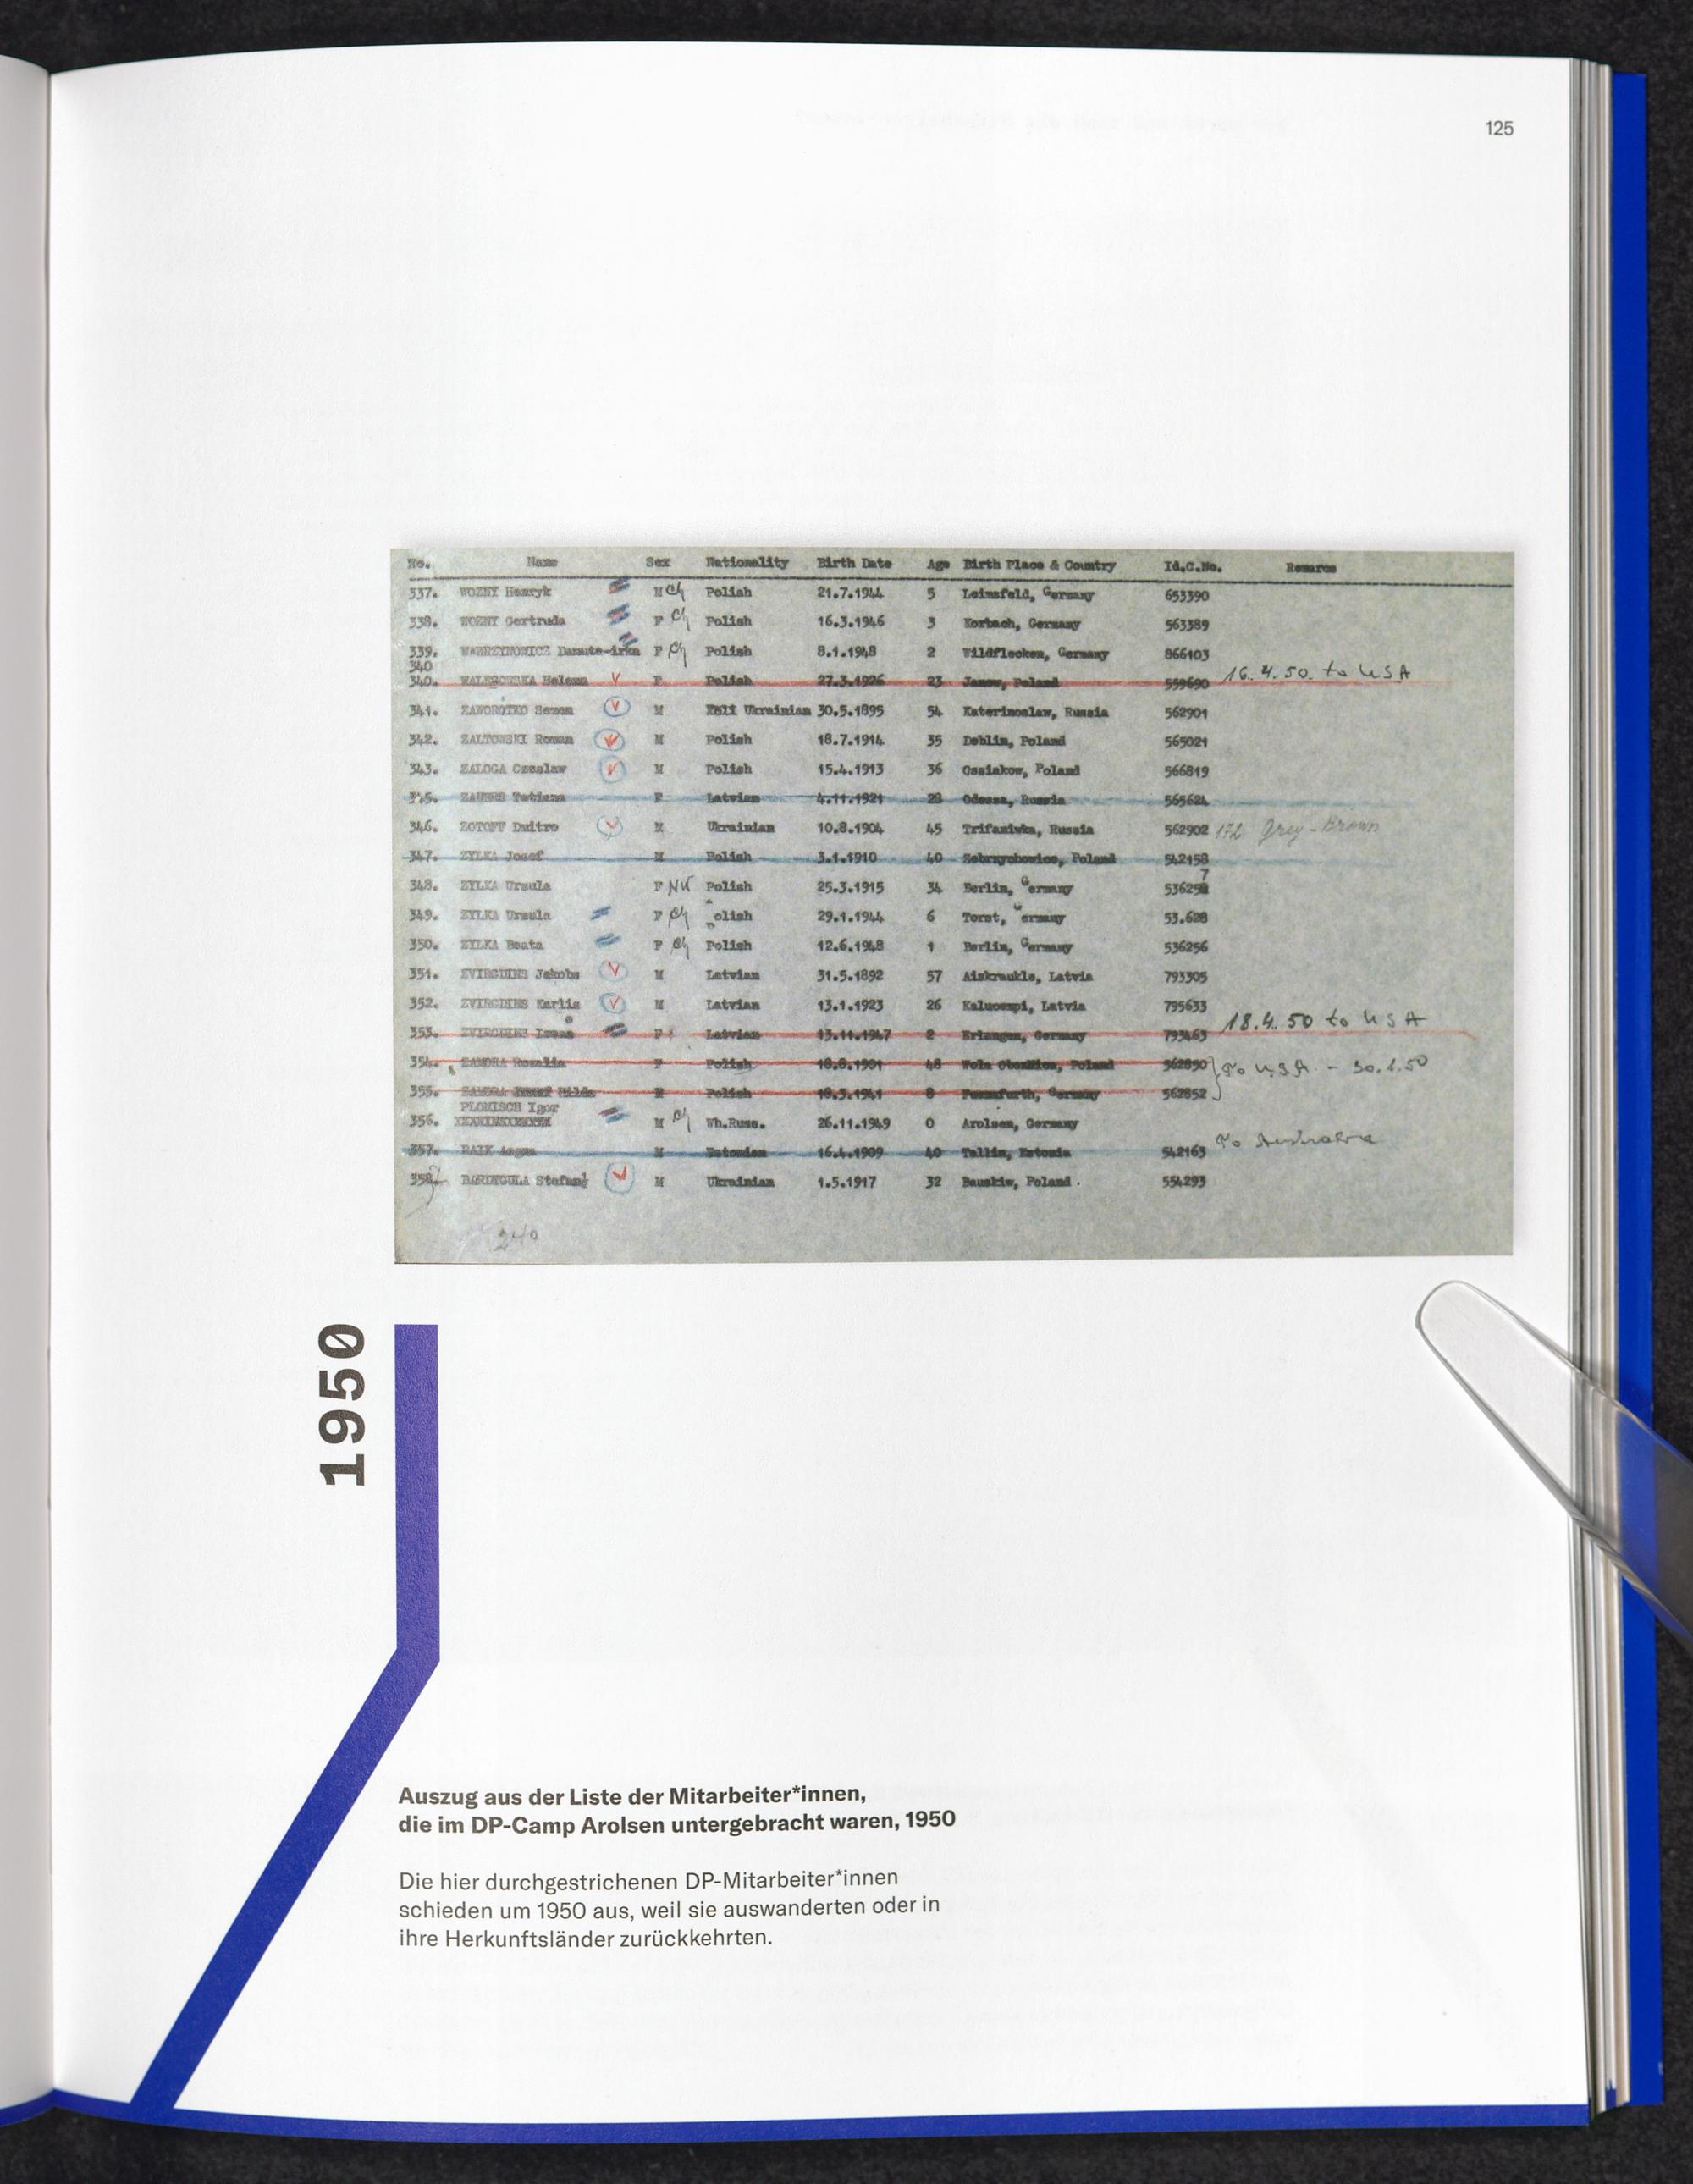 125
No. Name Sex Nationality Birth Date Age Birth Place & Country Id.C.No. Remarcs
337. WOZNY Henryk M Ch Polish 21.7.1944 5 Leimsfeld, Germany 653390
338. WOZNY Gertruda F Ch Polish 16.3.1946 3 Korbach, Germany 563389
339. WAWRZYNOWICZ Danuta-irka F Ch Polish 8.1.1948 2 Wildflecken, Germany 866103
340
340. Helena V F Polish 27.3.1926 23 Janow, Poland 559690 16.4.50. to USA
341. ZAWOROTKO Semen V M Ukrainian 30.5.1895 54 Katerinoslaw, Russia 562901
342. ZALTOWSKI Roman V M Polish 18.7.1914 35 Deblin, Poland 565021
343. ZALOGA Czeslaw V M Polish 15.4.1913 36 Ossiakow, Poland 566819
345. ZAUERS Tatiana F Latvian 4.11.1921 28 Odessa, Russia 565624
346. ZOTOFF Dmitro V M Ukrainian 10.8.1904 45 Trifaniwka, Russia 562902 172 Grey-Brown
347. ZYLKA Josef M Polish 3.1.1910 40 Zebrzychowice, Poland 542158
348. ZYLKA Ursula F NW Polish 25.3.1915 34 Berlin, Germany 536257
349. ZYLKA Ursula F Ch Polish 29.1.1944 6 Torst, Germany 53.628
350. ZYLKA Beata F Ch Polish 12.6.1948 1 Berlin, Germany 536256
351. ZVIRGDINS Jekobs V M Latvian 31.5.1892 57 Aizkraukle, Latvia 793305
352. ZVIRGDINS Karlis V M Latvian 13.1.1923 26 Kalucempi, Latvia 795633
353. ZVIRGDINS F Latvian 13.11.1947 2 Erlangen, Germany 793463 18.4.50 to USA
354. ZAMORA Rosalia F Polish 18.8.1901 48 Wola Poland 562850 To U.S.A. - 30.1.50
355. ZAMORA Hilda Polish 18.3.1941 8 Germany 562852
PLONISCH Igor
356. M Ch Wh.Russ. 26.11.1949 0 Arolsen, Germany
357. RAIK M Estonian 16.4.1909 40 Tallin, Estonia 542163 To Australia
358. BARDYGULA Stefan V M Ukrainian 1.5.1917 32 Bauskiw, Poland. 554293
240
1950
Auszug aus der Liste der Mitarbeiter*innen,
die im DP-Camp Arolsen untergebracht waren, 1950
Die hier durchgestrichenen DP-Mitarbeiter*innen
schieden um 1950 aus, weil sie auswanderten oder in
ihre Herkunftsländer zurückkehrten.